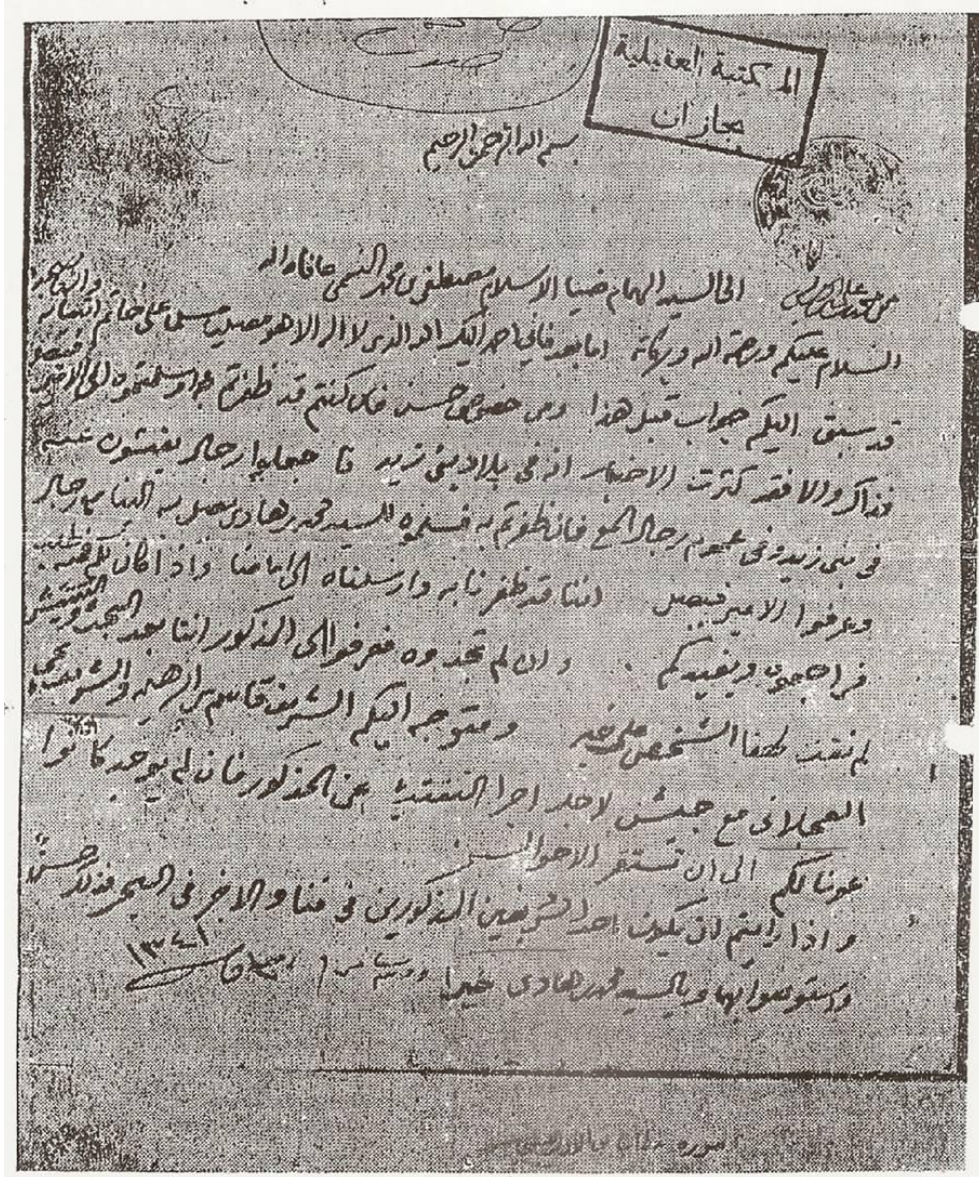 المكتبة العقيلية
بجازان
بسم الله الرحمن الرحيم
الى السيد الهمام ضيا الاسلام مصطفى بن محمد النعمي عافاه الله
السلام عليكم ورحمة الله وبركاته اما بعد فاني احمد اليكم الله الذي لا اله الا هو مصليا مسلما على خاتم انبيائه
قد سبق اليكم جواب قبل هذا ومن خصوص حسن فان كنتم قد ظفرتم به وسلمتموه الى الامير فيصل
فذاك والا فقد كثرت الاخبار انه في بلاد بني زيد فا رجال يفتشون عنه
في بني زيد وفي عموم رجال المع فان ظفرتم به فسلموه للسيد محمد بن هادي يصل به الينا رجال
وعرفوا الامير فيصل اننا قد ظفرنا به وارسلناه الى امامنا واذا كان
فراجعوه ويفيدكم وان لم تجدوه فعرفوا الى المذكور اننا بعد البحث والتفتيش
لم نقف لهذا الشخص على خبر ومتوجه اليكم الشريف قاسم والشريف يحيى
العجلاني مع جيش لاجل اجرا التفتيش عن المذكور فان لم يوجد كانوا
عونا لكم الى ان تستقر الاحوال
واذا رايتم ان يكون احد الشريفين المذكورين في قنا والاخر في البحر فذلك حسن
واستوصوا بهما وبالسيد محمد بن هادي خيرا
١٣٤١